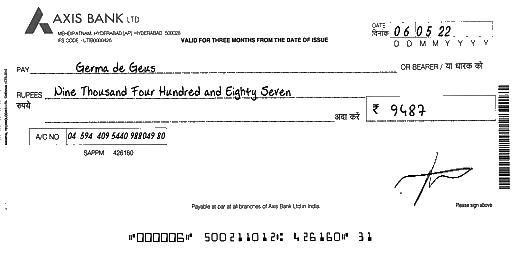 AXIS BANK LTD
MEHDIPATNAM, HYDERABAD [AP] HYDERABAD 500028
IFS CODE - UTIB0000426
VALID FOR THREE MONTHS FROM THE DATE OF ISSUE
DATE
दिनांक 06 05 22
D D M M Y Y Y Y
PAY Germa de Geus OR BEARER / या धारक को
RUPEES Nine Thousand Four Hundred and Eighty Seven
रुपये अदा करें ₹ 9487
A/C NO 04 594 409 5440 988049 80
SAPPM 426160
Payable at par at all branches of Axis Bank Ltd in India.
Please sign above
"000006" 500211012: 426160" 31